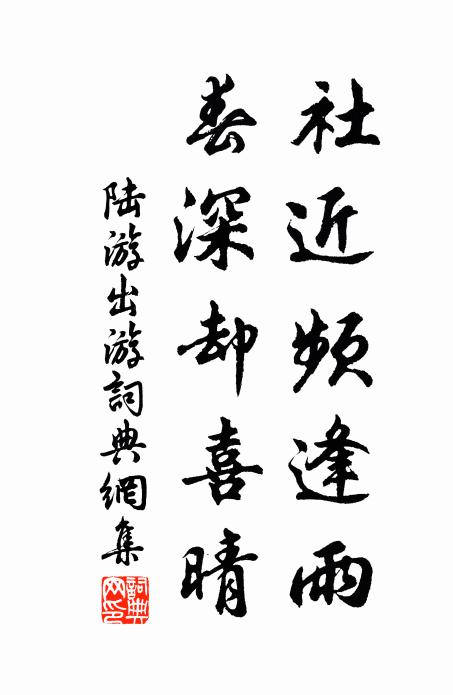 社近頻逢雨
春深却喜晴
陆游出游詞典網集
詞典网印